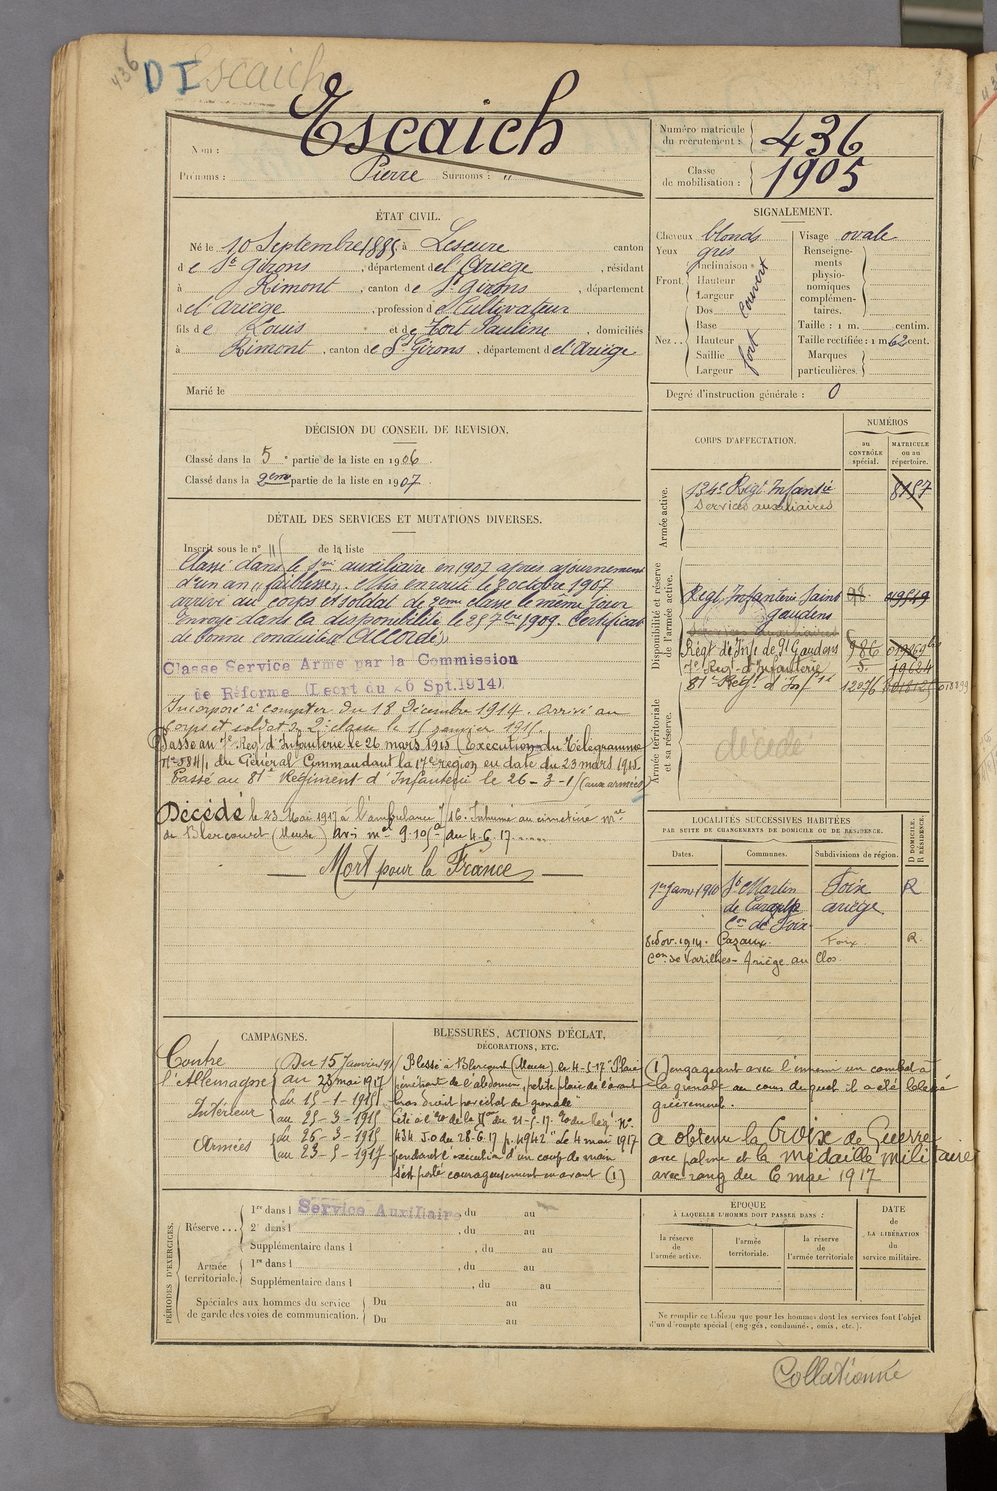 436
DI Escaich
Nom : Escaich
Prénoms : Pierre Surnoms : "
Numéro matricule du recrutement : 436
Classe de mobilisation : 1905
ÉTAT CIVIL.
Né le 10 Septembre 1885 à Lescure canton
de St Girons, département de l'Ariège, résidant
à Rimont, canton de St Girons, département
d el'ariège, profession de Cultivateur
fils de Louis et de Fort Pauline, domiciliés
à Rimont, canton de St Girons, département de l'Ariège
Marié le
SIGNALEMENT.
Cheveux blonds
Yeux gris
Front Inclinaison
Hauteur
Largeur
couvert
Nez Dos
Base
Hauteur
Saillie
Largeur
fort
Visage ovale
Renseignements physionomiques complémentaires.
Taille : 1 m. centim.
Taille rectifiée : 1 m 62 cent.
Marques particulières.
Degré d'instruction générale : 0
DÉCISION DU CONSEIL DE REVISION.
Classé dans la 5e partie de la liste en 1906.
Classé dans la 2eme partie de la liste en 1907.
DÉTAIL DES SERVICES ET MUTATIONS DIVERSES.
Inscrit sous le n° 11 de la liste
Classé dans le svi auxiliaire en 1907 après ajournement
d'un an "faiblesse". Mis en route le 8 octobre 1907
arrivé au corps et soldat de 2eme classe le même jour
Envoyé dans la disponibilité le 25 7bre 1909. Certificat
de bonne conduite "Accordé"
Classé Service Armé par la Commission
de Réforme (Décrt du 26 Spt.1914)
Incorporé à compter du 18 Décembre 1914. arrivé au
corps et soldat de 2e classe le 15 janvier 1915.
Passé au 7e Regt d'Infanterie le 26 mars 1915 (Exécution du Télégramme
n° 5841/1 du Général Commandant la 17e région en date du 23 mars 1915.
Passé au 81e Régiment d'Infanterie le 26-3-1 (aux armées)
Décédé le 23 Mai 1917 à l'ambulance 7/16. Inhumé au cimetière mre
de Blercourt (Meuse) Avis du 4.6.17
Mort pour la France
CORPS D'AFFECTATION.
NUMÉROS
au CONTRÔLE spécial.
MATRICULE ou au répertoire.
Armée active.
134e Regt Infanterie 8157
Services auxiliaires
Disponibilité et réserve de l'armée active.
Regt Infanterie Saint gaudens
Services auxiliaires
Régt de Infie de St Gaudens 986
7e Regt d'Infanterie 5. 19624
81e Regt d'Infie 12076 018899
Armée territoriale et sa réserve.
décédé
LOCALITÉS SUCCESSIVES HABITÉES
PAR SUITE DE CHANGEMENTS DE DOMICILE OU DE RÉSIDENCE.
Dates. Communes. Subdivisions de région. D DOMICILE. R RÉSIDENCE.
1er Janv. 1910 St Martin Foix R
de Caralp ariège
Con de Foix
8 Nov. 1914. Cazaux. Foix. R.
Con de Varilhes - Ariège au Clos
CAMPAGNES.
Contre l'Allemagne Du 15 Janvier 191
au 23 mai 1917
Intérieur du 15-1-1915
au 25-3-1915
Armées du 26-3-1915
au 23-5-1917
BLESSURES, ACTIONS D'ÉCLAT,
DÉCORATIONS, ETC.
Blessé à Blercourt (Meuse) le 4-5-17 "Plaie
pénétrant de l'abdomen, petite plaie de l'avant
bras droit par éclat de grenade"
434 J.o du 28.6.17 p. 4942 "Le 4 mai 1917
pendant l'exécution d'un coup de main
s'est porté courageusement en avant (1)
(1) engageant avec l'ennemi un combat à
la grenade au cours duquel il a été blessé
grièvement.
a obtenu la Croix de Guerre
avec palme et la médaille militaire
avec rang du 6 mai 1917
PÉRIODES D'EXERCICES.
Réserve ... 1re dans l Service Auxiliaire, du au
2e dans l , du au
Supplémentaire dans l , du au
Armée territoriale. 1re dans l , du au
Supplémentaire dans l , du au
Spéciales aux hommes du service de garde des voies de communication. Du au
Du au
ÉPOQUE
À LAQUELLE L'HOMME DOIT PASSER DANS :
la réserve de l'armée active.
l'armée territoriale.
la réserve de l'armée territoriale
DATE de LA LIBÉRATION du service militaire.
Ne remplir ce tableau que pour les hommes dont les services font l'objet
d'un décompte spécial (engagés, condamnés, omis, etc.).
Collationné